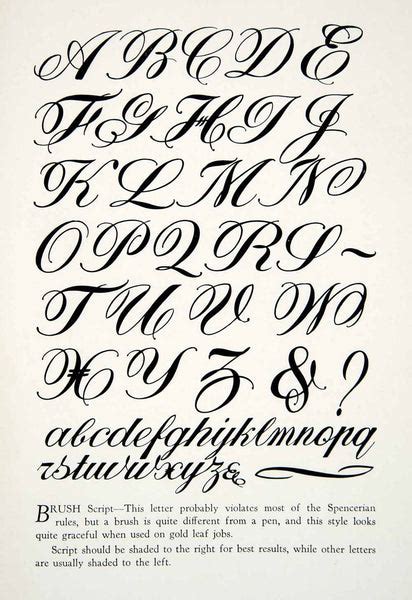 A B C D E
F G H I J
K L M N
O P Q R S ~
T U V W
X Y Z & ?
abcdefghijklmnopq
rstuvwxyz&
BRUSH Script—This letter probably violates most of the Spencerian
rules, but a brush is quite different from a pen, and this style looks
quite graceful when used on gold leaf jobs.
Script should be shaded to the right for best results, while other letters
are usually shaded to the left.